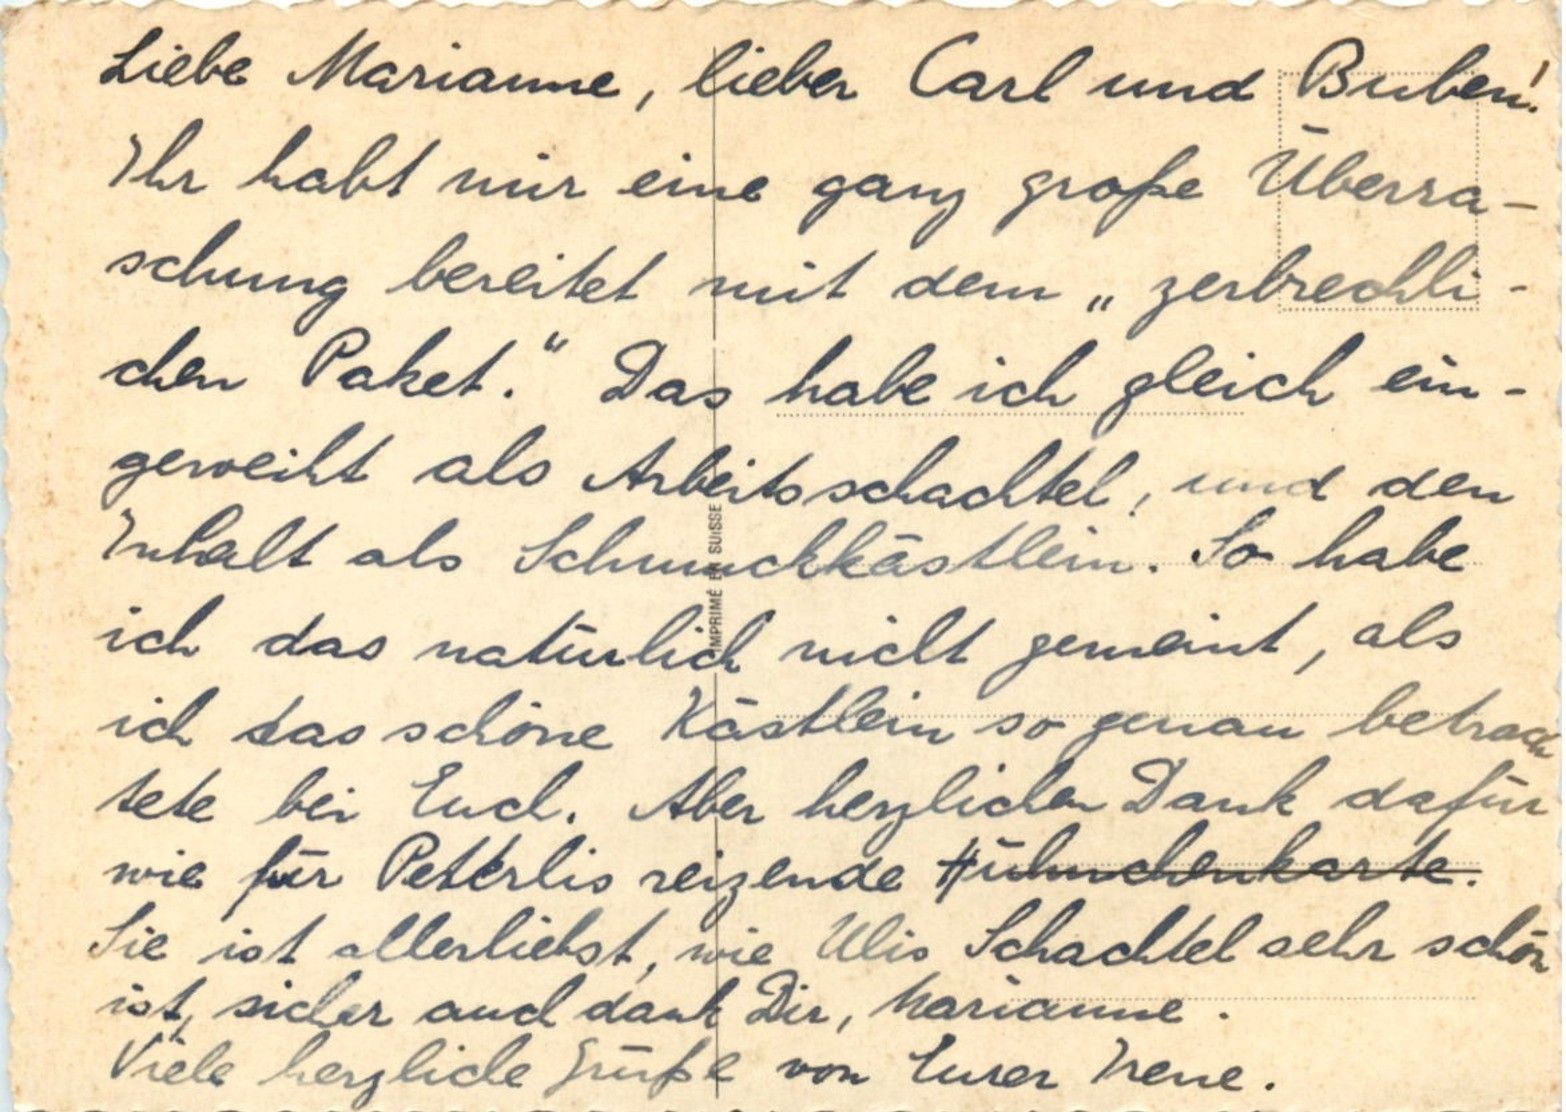 Liebe Marianne, lieber Carl und Buben!
Ihr habt mir eine ganz große Überra-
schung bereitet mit dem „zerbrechli-
chen Paket.“ Das habe ich gleich ein-
geweiht als Arbeitsschachtel, und den
Inhalt als Schmuckkästlein. So habe
ich das natürlich nicht gemeint, als
ich das schöne Kästlein so genau betrach
tete bei Euch. Aber herzlichen Dank dafür
wie für Peterlis reizende Hühnchenkarte.
Sie ist allerliebst, wie Ulis Schachtel sehr schön
ist, sicher auch dank Dir, Marianne.
Viele herzliche Grüße von Eurer Irene.
IMPRIMÉ EN SUISSE